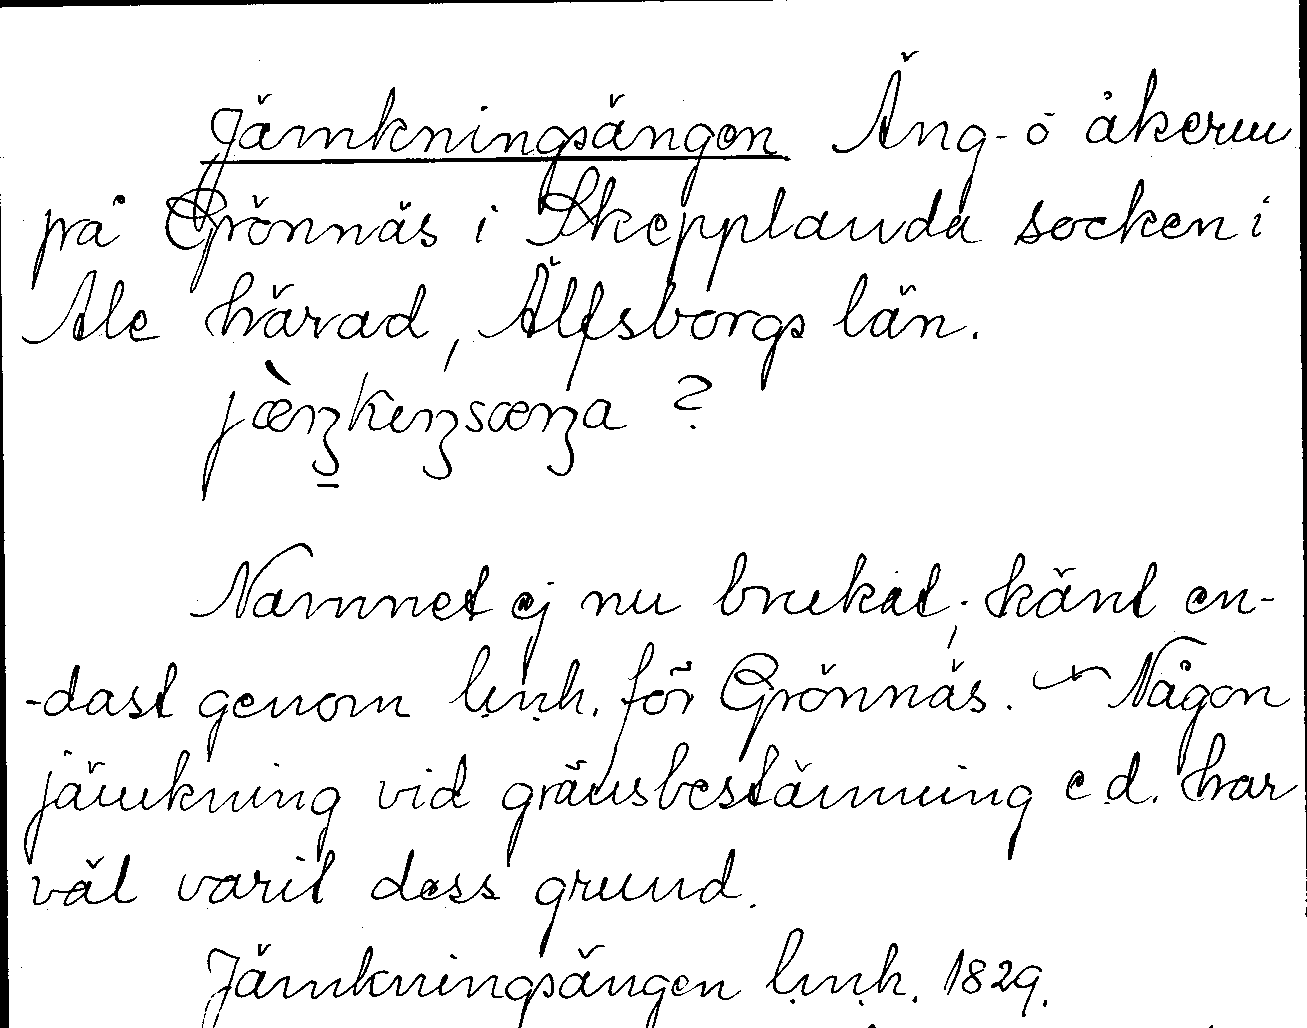 Jämkningsängen Äng- o åkerm
på Grönnäs i Skepplanda socken i
Ale härad, Älfsborgs län.
jæ̀ŋkeŋsæŋa ?
Namnet ej nu brukat; känt en-
-dast genom l.m.h. för Grönnäs. — Någon
jämkning vid gränsbestämning e.d. har
väl varit dess grund.
Jämkningsängen l.m.h. 1829.